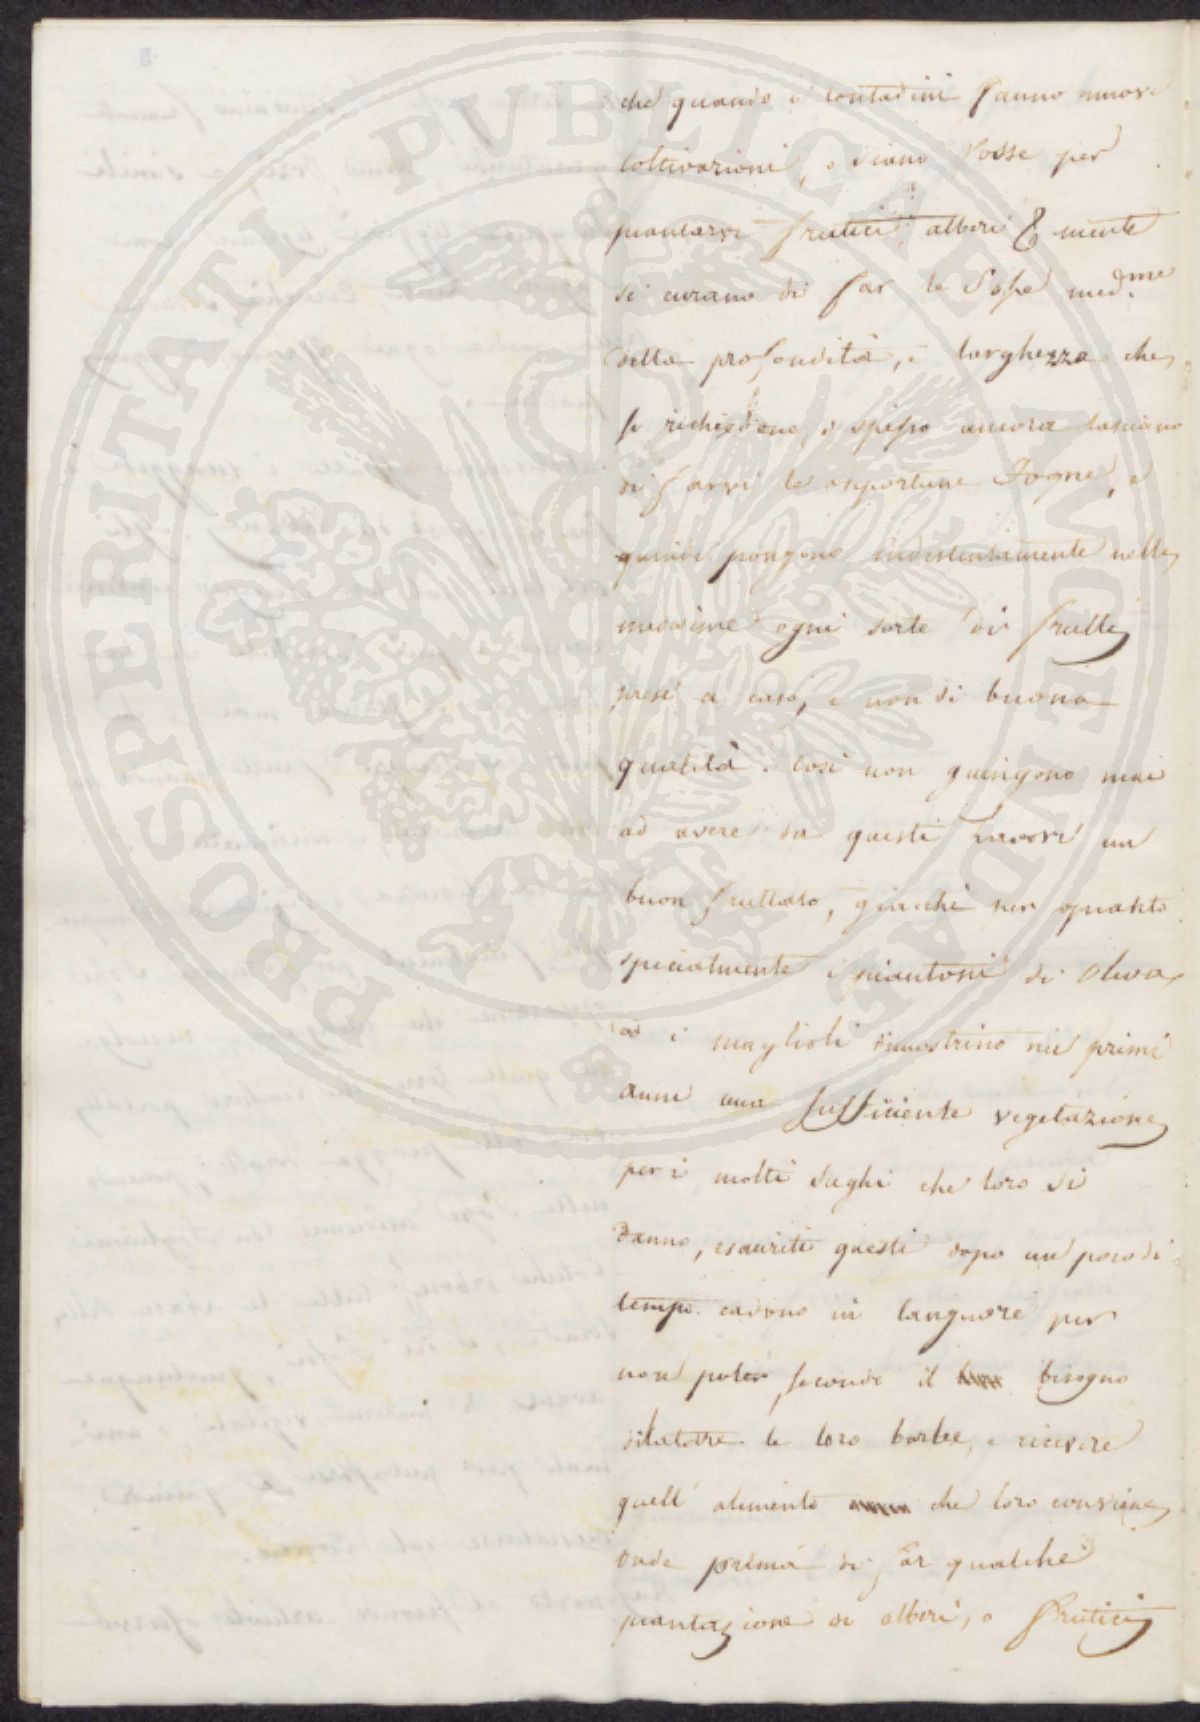 PROSPERITATI PUBLICAE AUGENDAE
che quando i Contadini fanno nuove
Coltivazioni, o siano Fosse per
piantarvi frutici alberi & niente
si curano di far le Fosse med.me
della profondità, e larghezza che
si richiedono, e spesso ancora lasciano
di farvi le opportune Fogne, e
quindi pongono indistintamente nelle
medesime ogni sorte di frutti
presi a caso, e non di buona
qualità. Così non giungono mai
ad avere da questi lavori un
buon fruttato, giacché per quanto
specialmente i piantoni di Oliva
ed i maglioli dimostrino nei primi
anni una sufficiente vegetazione
per i molti sughi che loro si
danno, esauriti questi dopo un poco di
tempo cadono in languore per
non poter secondo il bisogno
dilatare le loro barbe, e ricevere
quell' alimento che loro conviene
onde prima di far qualche
piantazione di alberi, o frutici